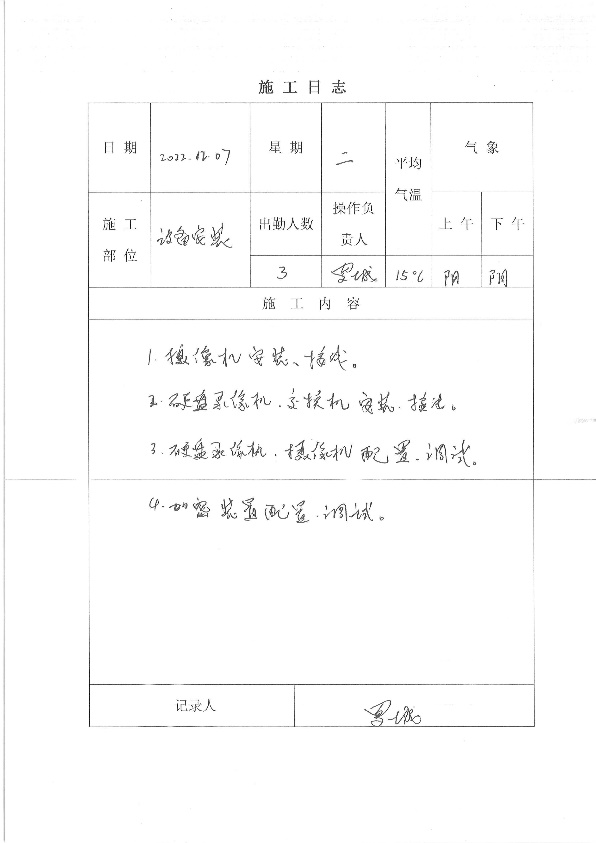 施工日志
日期 2022.12.07 星期 二 平均气温 气象
施工部位 设备安装 出勤人数 操作负责人 上午 下午
3 罗城 15℃ 阴 阴
施工内容
1.摄像机安装、接线。
2.硬盘录像机、交换机安装、接线。
3.硬盘录像机、摄像机配置、调试。
4.加密装置配置、调试。
记录人 罗城